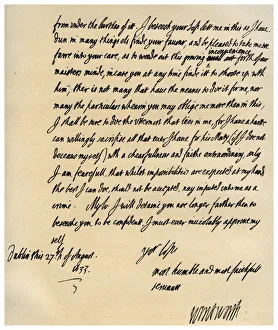 from under the burthen of it. I beseech your Lo:pp lett me in this as I have
dun in many things els finde your favour, and be pleased to take mee
farre into your care, as to weede out this growing inconvenience out forth of our
maisters minde, incase you at any time finde itt to shoote up with
him; ther is not many that have the means to doe itt for me, nor
many the particulers wherin you may oblige me more then in this,
I shall be sure to doe the uttermost that lies in me, for I have a hartt
can willingly sacrifise all that ever I have for his Ma:ty (if I doe not
deceave my self) with a chearfulness and faithe extraordinary, only
I am fearefull, that whilst impossibilities are expected at my hand
the best I can doe, should not be accepted, nay imputed unto me as a
crime. My lo: I will detaine you noe longer further then to
beseeche you to be confident I must ever immutably approve my
self
Dublin this 27th of August
1633.
your Lo:pps
most humble and most faithfull
servant
Wentworth